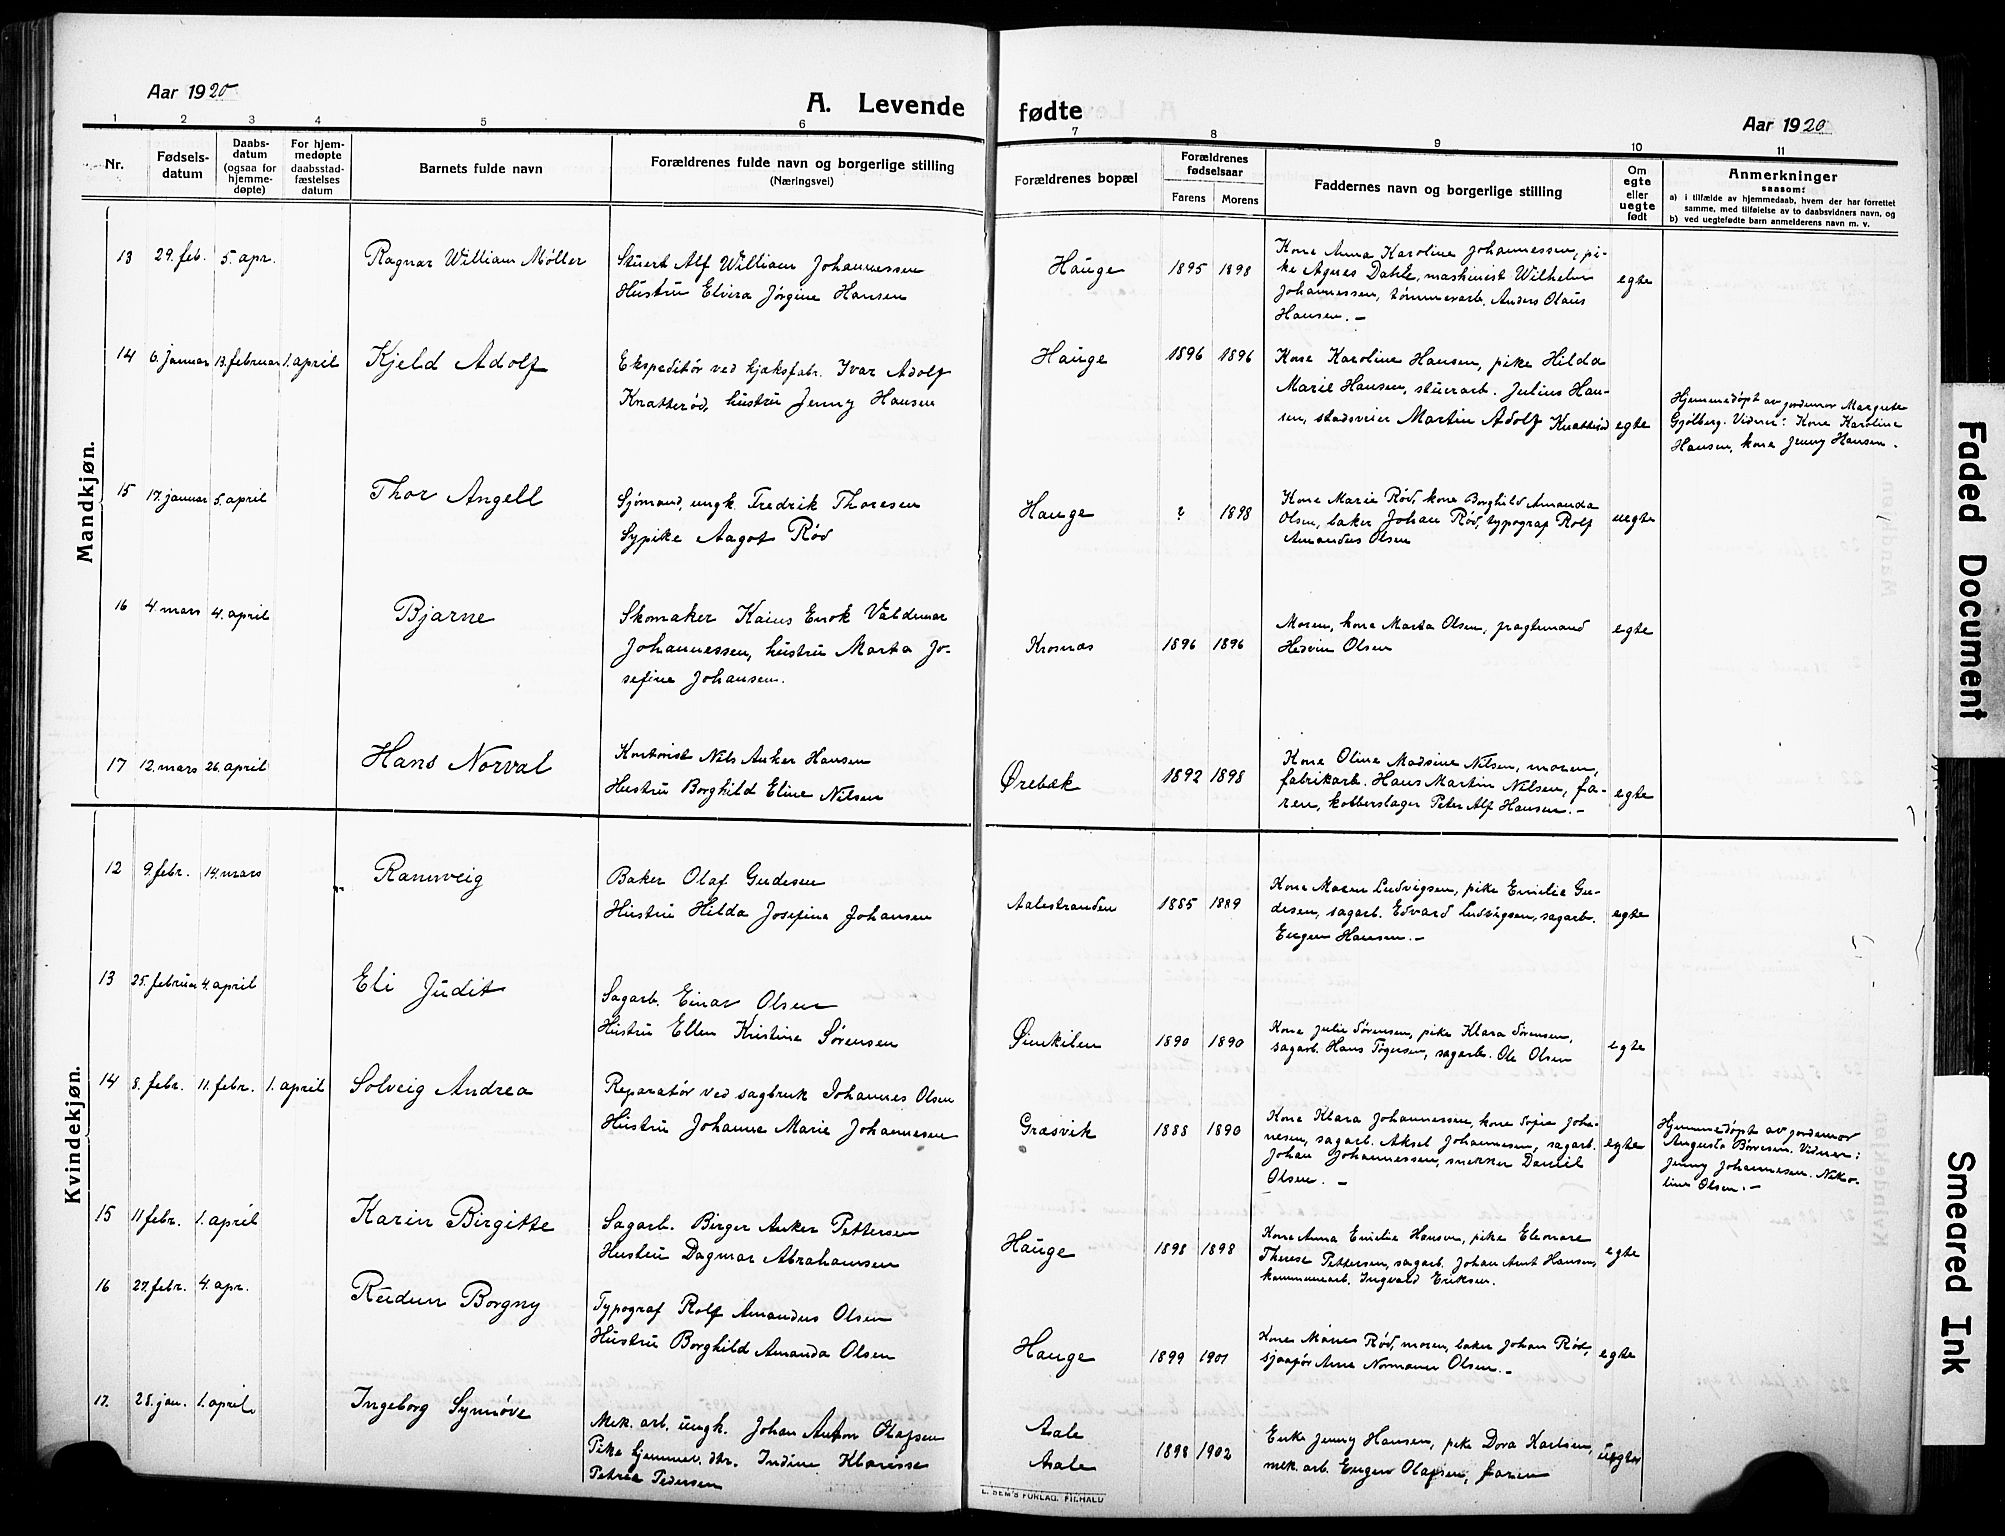 Aar 1920
A. Levende fødte
Aar 1920
1 2 3 4 5 6 7 8 9 10 11
Nr.
Fødsels-
datum
Daabs-
datum
(ogsaa for
hjemme-
døpte)
For hjem-
medøpte
daabsstad-
fæstelses
datum
Barnets fulde navn
Forældrenes fulde navn og borgerlige stilling
(Næringsvei)
Forældrenes bopæl
Forældrenes
fødselsaar
Farens Morens
Faddernes navn og borgerlige stilling
Om
egte
eller
uegte
født
Anmerkninger
saasom:
a) i tilfælde av hjemmedaab, hvem der har forrettet
samme, med tilføielse av to daabsvidners navn, og
b) ved uegtefødte barn anmelderens navn m. v.
Mandkjøn.
13 29. feb. 5. apr. Ragnar William Møller
Stuert Alf William Johannessen
Hustru Elvira Jørgine Hansen
Hauge 1895 1898
Kone Anna Karoline Johannessen, pi-
ke Agnes Dahle, maskinist Wilhelm
Johannessen, tømmerarb. Anders Olaus
Hansen. –
egte
14 6. januar 13. februar 1. april Kjeld Adolf
Ekspeditør ved kjæksfabr. Ivar Adolf
Knatterød, hustru Jenny Hansen
Hauge 1896 1896
Kone Karoline Hansen, pike Hilda
Marie Hansen, stuerarb. Julius Han-
sen, stadsveier Martin Adolf Knatterød
egte
Hjemmedøpt av jordemor Margrete
Gjølberg. Vidner: Kone Karoline
Hansen, kone Jenny Hansen.
15 17. januar 5. april Thor Angell
Sjømand, ungk. Fredrik Thoresen
Sypike Aagot Rød
Hauge ? 1898
Kone Marie Rød, kone Borghild Amanda
Olsen, baker Johan Rød, typograf Rolf
Amandus Olsen
uegte
16 4. mars 4. april Bjarne
Skomaker Kaius Enok Valdemar
Johannessen, hustru Marta Jo-
sefine Johansen.
Krosnæs 1896 1896
Moren, kone Marta Olsen, fragtemand
Hedvin Olsen
egte
17 12. mars 26. april Hans Norval
Kontorist Nils Anker Hansen
Hustru Borghild Eline Nilsen
Ørebæk 1892 1898
Kone Oline Madsine Nilsen, moren,
fabrikarb. Hans Martin Nilsen, fa-
ren, kobberslager Peter Alf Hansen. –
egte
Kvindekjøn.
12 9. febr. 14. mars Rannveig
Baker Olaf Gudesen
Hustru Hilda Josefine Johansen
Aalestranden 1885 1889
Kone Maren Ludvigsen, pike Emilie Gu-
desen, sagarb. Edvard Ludvigsen, sagarb.
Eugen Hansen. –
egte
13 25. februar 4. april Eli Judit
Sagarb. Einar Olsen
Hustru Ellen Kristine Sørensen
Øienkilen 1890 1890
Kone Julie Sørensen, pike Klara Sørensen,
sagarb. Hans Togersen, sagarb. Ole Olsen
egte
14 8. febr. 11. febr. 1. april Solveig Andrea
Reparatør ved sagbruk Johannes Olsen
Hustru Johanne Marie Johannesen
Græsvik 1888 1890
Kone Klara Johannessen, kone Sofie Joha-
nesen, sagarb. Aksel Johannesen, sagarb.
Johan Johannessen, snekker Daniel
Olsen. –
egte
Hjemmedøpt av jordemor
Augusta Børresen. Vidner:
Jenny Johannesen. Niko-
line Olsen. –
15 11. febr. 1. april Karin Birgitte
Sagarb. Birger Anker Pettersen
Hustru Dagmar Abrahamsen
Hauge 1898 1898
Kone Anna Emilie Hansen, pike Eleonore
Therese Pettersen, sagarb. Johan Arnt Hansen,
kommunearb. Ingvald Eriksen.
egte
16 27. febr. 4. apr. Reidun Borgny
Typograf Rolf Amandus Olsen
Hustru Borghild Amanda Olsen
Hauge 1899 1901
Kone Marie Rød, moren, baker Johan Rød,
sjaafør Arne Normann Olsen. –
egte
17. 28. jan. 1. april Ingeborg Synnøve
Mek. arb. ungk. Johan Anton Olafsen
Pike hjemmev. dtr. Indine Klarisse
Petrea Pedersen
Aale
Aale
1898 1902
Enke Jenny Hansen, pike Dora Karlsen,
mek. arb. Eugen Olafsen, faren
uegte
E. SEM'S FORLAG. FR.HALD
Faded Document
Smeared Ink